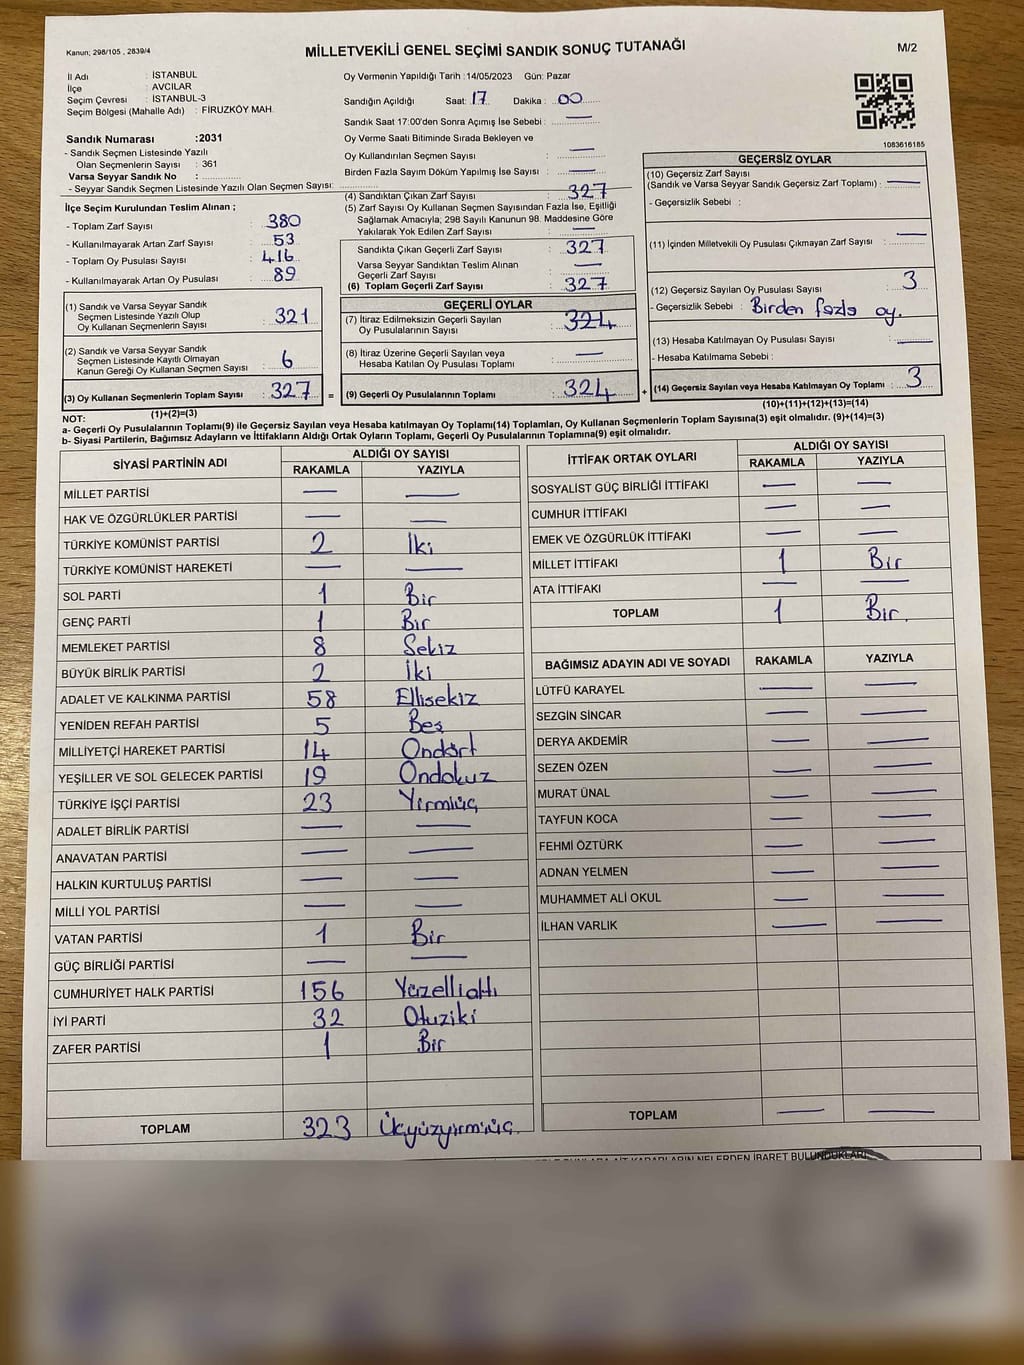 Kanun; 298/105 , 2839/4
MİLLETVEKİLİ GENEL SEÇİMİ SANDIK SONUÇ TUTANAĞI
M/2
İl Adı : İSTANBUL
İlçe : AVCILAR
Seçim Çevresi : İSTANBUL-3
Seçim Bölgesi (Mahalle Adı) : FİRUZKÖY MAH.
Sandık Numarası :2031
- Sandık Seçmen Listesinde Yazılı
Olan Seçmenlerin Sayısı : 361
Varsa Seyyar Sandık No :
- Seyyar Sandık Seçmen Listesinde Yazılı Olan Seçmen Sayısı:
Oy Vermenin Yapıldığı Tarih :14/05/2023 Gün: Pazar
Sandığın Açıldığı Saat: 17 Dakika : 00
Sandık Saat 17:00'den Sonra Açımış İse Sebebi : —
Oy Verme Saati Bitiminde Sırada Bekleyen ve
Oy Kullandırılan Seçmen Sayısı : —
Birden Fazla Sayım Döküm Yapılmış İse Sayısı : —
1083616185
İlçe Seçim Kurulundan Teslim Alınan ;
- Toplam Zarf Sayısı : 380
- Kullanılmayarak Artan Zarf Sayısı : 53
- Toplam Oy Pusulası Sayısı : 416
- Kullanılmayarak Artan Oy Pusulası : 89
(1) Sandık ve Varsa Seyyar Sandık
Seçmen Listesinde Yazılı Olup
Oy Kullanan Seçmenlerin Sayısı : 321
(2) Sandık ve Varsa Seyyar Sandık
Seçmen Listesinde Kayıtlı Olmayan
Kanun Gereği Oy Kullanan Seçmen Sayısı : 6
(3) Oy Kullanan Seçmenlerin Toplam Sayısı : 327 =
(1)+(2)=(3)
(4) Sandıktan Çıkan Zarf Sayısı : 327
(5) Zarf Sayısı Oy Kullanan Seçmen Sayısından Fazla İse, Eşitliği
Sağlamak Amacıyla; 298 Sayılı Kanunun 98. Maddesine Göre
Yakılarak Yok Edilen Zarf Sayısı : —
Sandıkta Çıkan Geçerli Zarf Sayısı : 327
Varsa Seyyar Sandıktan Teslim Alınan
Geçerli Zarf Sayısı : —
(6) Toplam Geçerli Zarf Sayısı : 327
GEÇERLİ OYLAR
(7) İtiraz Edilmeksizin Geçerli Sayılan
Oy Pusulalarının Sayısı : 324
(8) İtiraz Üzerine Geçerli Sayılan veya
Hesaba Katılan Oy Pusulası Toplamı : —
(9) Geçerli Oy Pusulalarının Toplamı : 324 +
GEÇERSİZ OYLAR
(10) Geçersiz Zarf Sayısı
(Sandık ve Varsa Seyyar Sandık Geçersiz Zarf Toplamı) : —
- Geçersizlik Sebebi :
(11) İçinden Milletvekili Oy Pusulası Çıkmayan Zarf Sayısı : —
(12) Geçersiz Sayılan Oy Pusulası Sayısı : 3
- Geçersizlik Sebebi : Birden fazla oy.
(13) Hesaba Katılmayan Oy Pusulası Sayısı : —
- Hesaba Katılmama Sebebi :
(14) Geçersiz Sayılan veya Hesaba Katılmayan Oy Toplamı : 3
(10)+(11)+(12)+(13)=(14)
NOT:
a- Geçerli Oy Pusulalarının Toplamı(9) ile Geçersiz Sayılan veya Hesaba katılmayan Oy Toplamı(14) Toplamları, Oy Kullanan Seçmenlerin Toplam Sayısına(3) eşit olmalıdır. (9)+(14)=(3)
b- Siyasi Partilerin, Bağımsız Adayların ve İttifakların Aldığı Ortak Oyların Toplamı, Geçerli Oy Pusulalarının Toplamına(9) eşit olmalıdır.
SİYASİ PARTİNİN ADI ALDIĞI OY SAYISI
RAKAMLA YAZIYLA
MİLLET PARTİSİ — —
HAK VE ÖZGÜRLÜKLER PARTİSİ — —
TÜRKİYE KOMÜNİST PARTİSİ 2 İki
TÜRKİYE KOMÜNİST HAREKETİ — —
SOL PARTİ 1 Bir
GENÇ PARTİ 1 Bir
MEMLEKET PARTİSİ 8 Sekiz
BÜYÜK BİRLİK PARTİSİ 2 İki
ADALET VE KALKINMA PARTİSİ 58 Ellisekiz
YENİDEN REFAH PARTİSİ 5 Beş
MİLLİYETÇİ HAREKET PARTİSİ 14 Ondört
YEŞİLLER VE SOL GELECEK PARTİSİ 19 Ondokuz
TÜRKİYE İŞÇİ PARTİSİ 23 Yirmiüç
ADALET BİRLİK PARTİSİ — —
ANAVATAN PARTİSİ — —
HALKIN KURTULUŞ PARTİSİ — —
MİLLİ YOL PARTİSİ — —
VATAN PARTİSİ 1 Bir
GÜÇ BİRLİĞİ PARTİSİ — —
CUMHURİYET HALK PARTİSİ 156 Yüzellialtı
İYİ PARTİ 32 Otuziki
ZAFER PARTİSİ 1 Bir
TOPLAM 323 Üçyüzyirmiüç
İTTİFAK ORTAK OYLARI ALDIĞI OY SAYISI
RAKAMLA YAZIYLA
SOSYALİST GÜÇ BİRLİĞİ İTTİFAKI — —
CUMHUR İTTİFAKI — —
EMEK VE ÖZGÜRLÜK İTTİFAKI — —
MİLLET İTTİFAKI 1 Bir
ATA İTTİFAKI — —
TOPLAM 1 Bir.
BAĞIMSIZ ADAYIN ADI VE SOYADI RAKAMLA YAZIYLA
LÜTFÜ KARAYEL — —
SEZGİN SİNCAR — —
DERYA AKDEMİR — —
SEZEN ÖZEN — —
MURAT ÜNAL — —
TAYFUN KOCA — —
FEHMİ ÖZTÜRK — —
ADNAN YELMEN — —
MUHAMMET ALİ OKUL — —
İLHAN VARLIK — —
TOPLAM — —
NELERDEN İBARET BULUNDUKLARI